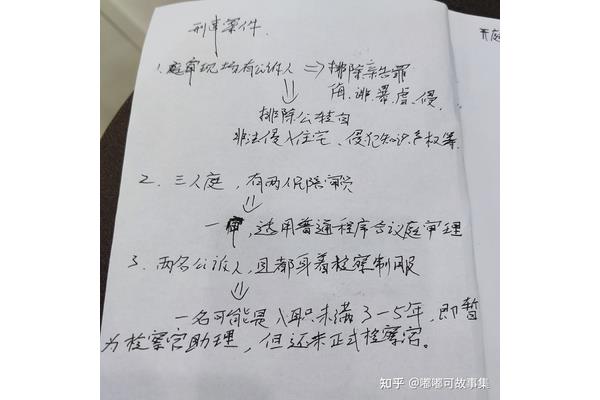 刑事案件.
1、庭审现场有公诉人 => 排除亲告罪
侮.诽.暴.虐.侵
排除公转自
非法侵入住宅、侵犯知识产权等
2. 三人庭，有两人民陪审员
一审，适用普通程序合议庭审理
3. 两名公诉人，且都身着检察制服
一名可能是入职未满3-5年，即暂
为检察官助理，但还未正式检察官。
开庭
知乎 @嘟嘟可故事集